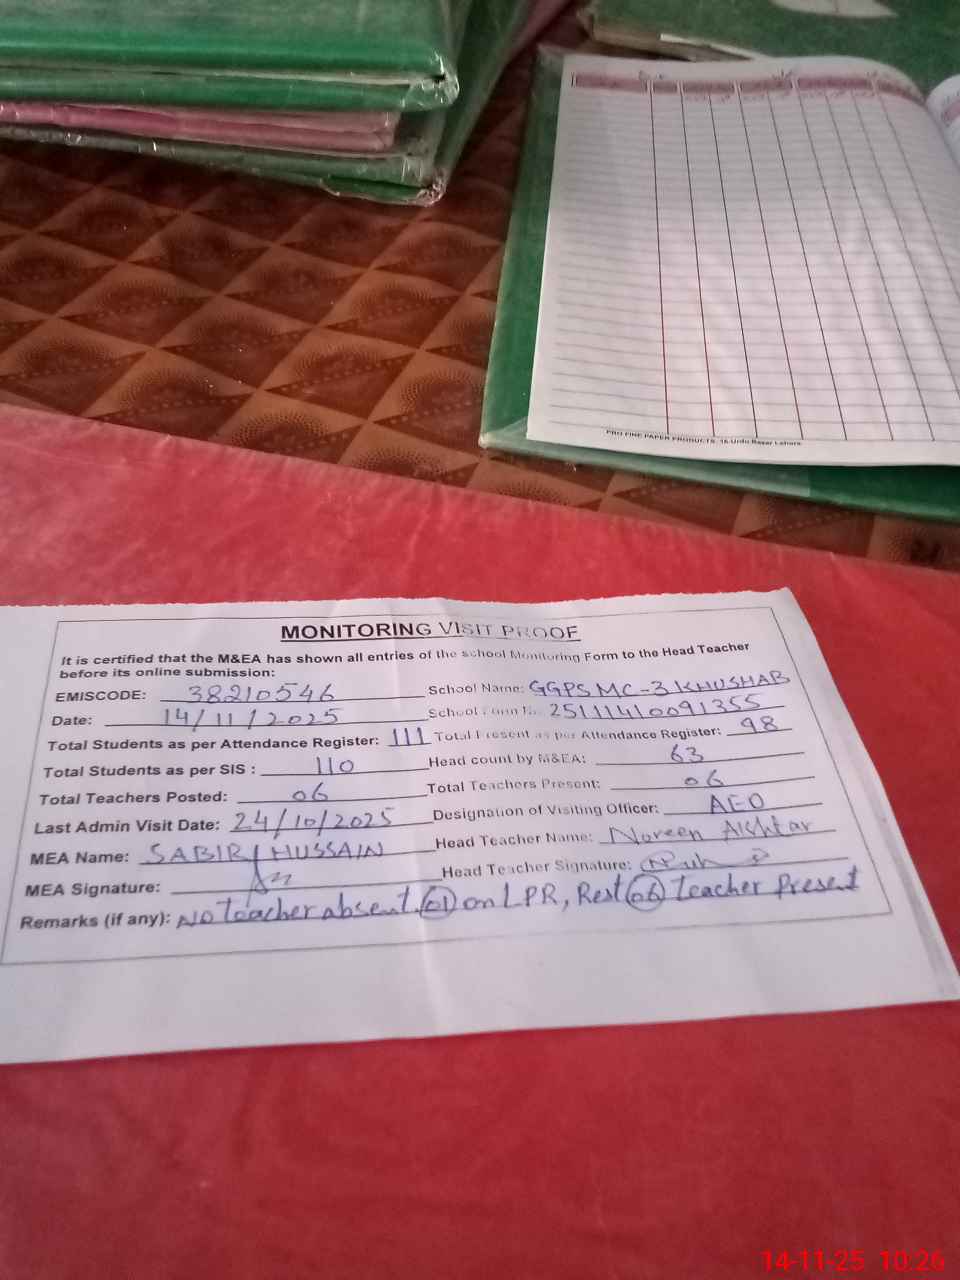 PRO FINE PAPER PRODUCTS. 16-Urdu Bazar Lahore.
MONITORING VISIT PROOF
It is certified that the M&EA has shown all entries of the school Monitoring Form to the Head Teacher
before its online submission:
EMISCODE: 38210546 School Name: GGPS MC-3 KHUSHAB
Date: 14/11/2025 School Form No. 25111410091355
Total Students as per Attendance Register: 111 Total Present as per Attendance Register: 98
Total Students as per SIS : 110 Head count by M&EA: 63
Total Teachers Posted: 06 Total Teachers Present: 06
Last Admin Visit Date: 24/10/2025 Designation of Visiting Officer: AEO
MEA Name: SABIR HUSSAIN Head Teacher Name: Noreen Akhtar
MEA Signature: Head Teacher Signature:
Remarks (if any): No teacher absent. 01 on LPR, Rest 06 teacher Present
14-11-25 10:26